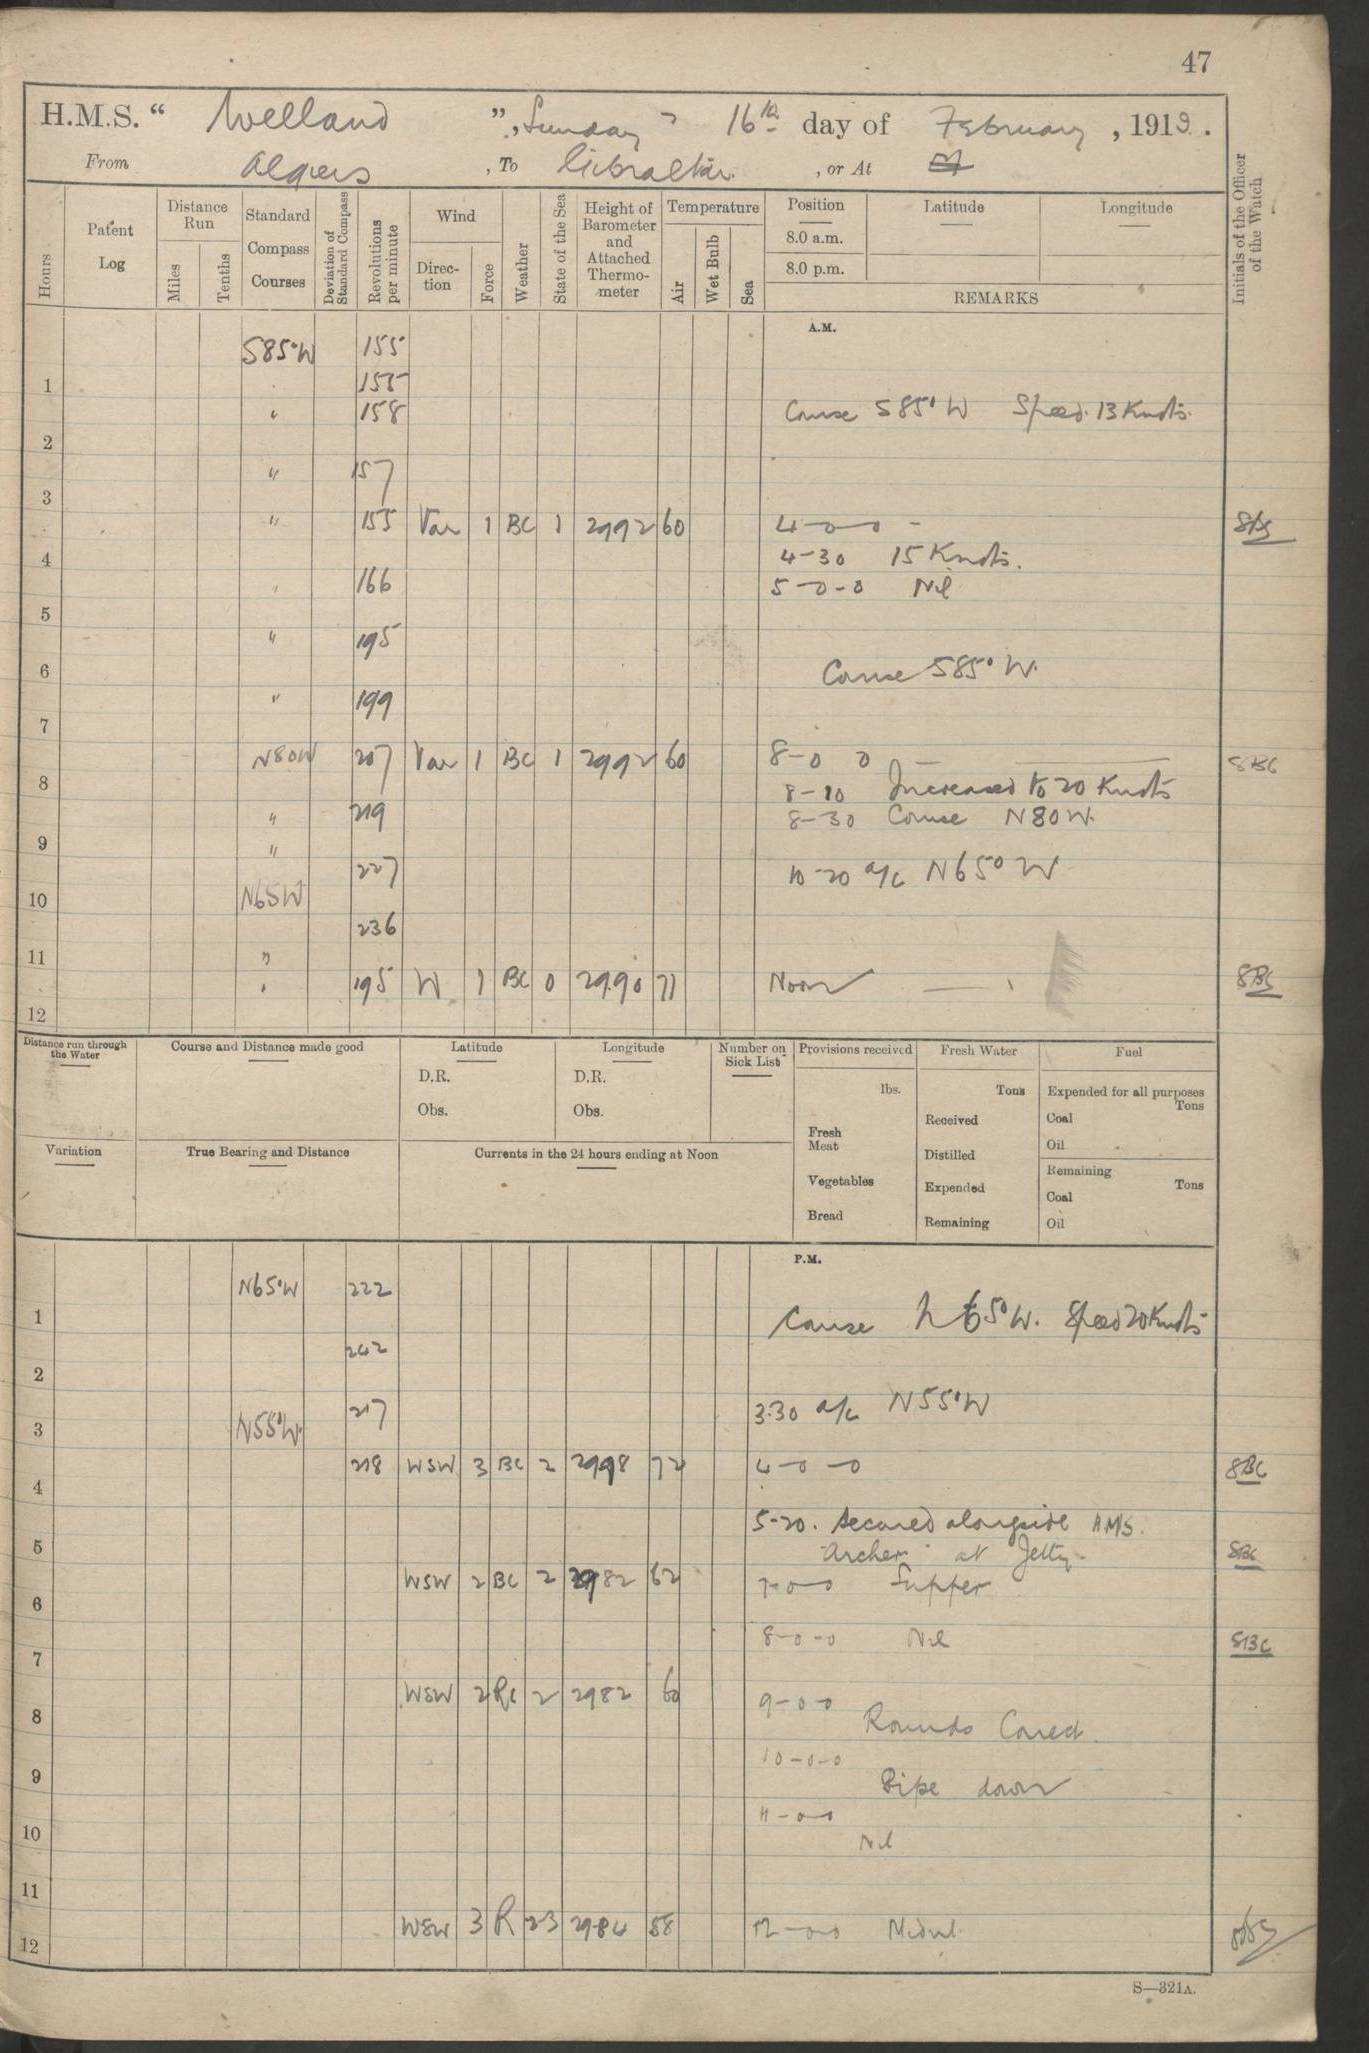 47
H.M.S. “ Welland ”, Sunday 16th day of February, 1919.
From Algiers, To Gibraltar, or At
Hours
Patent Log
Distance Run
Miles
Tenths
Standard Compass Courses
Deviation of Standard Compass
Revolutions per minute
Wind
Direc-tion
Force
Weather
State of the Sea
Height of Barometer and Attached Thermo-meter
Temperature
Air
Wet Bulb
Sea
Position
8.0 a.m.
8.0 p.m.
Latitude
Longitude
REMARKS
Initials of the Officer of the Watch
A.M.
S85°W 155
1 155
" 158 Course S85°W Speed 13 Knots.
2
" 157
3
" 155 Var 1 BC 1 2992 60 4-0-0 - SBC
4 4-30 15 Knots.
" 166 5-0-0 Nil
5
" 195
6 Course S85°W.
" 199
7
N80W 207 Var 1 BC 1 2992 60 8-0 0 SBC
8 8-10 Increased to 20 Knots
" 219 8-30 Course N80W.
9
" 227 10-20 a/c N65°W
10 N65W
236
11 "
" 195 W 1 BC 0 29.90 71 Noon SBC
12
Distance run through the Water
Course and Distance made good
Latitude
D.R.
Obs.
Longitude
D.R.
Obs.
Number on Sick List
Provisions received
lbs.
Fresh Meat
Vegetables
Bread
Fresh Water
Tons
Received
Distilled
Expended
Remaining
Fuel
Expended for all purposes
Tons
Coal
Oil
Remaining
Tons
Coal
Oil
Variation
True Bearing and Distance
Currents in the 24 hours ending at Noon
P.M.
N65°W 222
1 Course N65°W. Speed 20 Knots
242
2
217 3.30 a/c N55°W
3 N55°W.
218 WSW 3 BC 2 2998 72 4-0-0 SBC
4
5-20. Secured alongside HMS.
5 "Archer" at Jetty. SBC
WSW 2 BC 2 2982 62 7-0-0 Supper
6
8-0-0 Nil SBC
7
WSW 2 RC 2 2982 60 9-0-0
8 Rounds Corect.
10-0-0
9 Pipe down
11-0-0
10 Nil
11
WSW 3 R 2-3 2984 58 12-0-0 Midnt. SBC
12
S—321A.